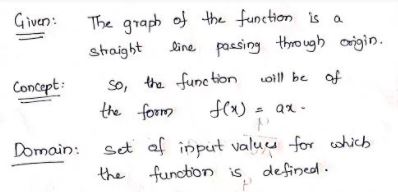 Given: The graph of the function is a
straight line passing through origin.
Concept: So, the function will be of
the form f(x) = ax.
Domain: set of input values for which
the function is defined.